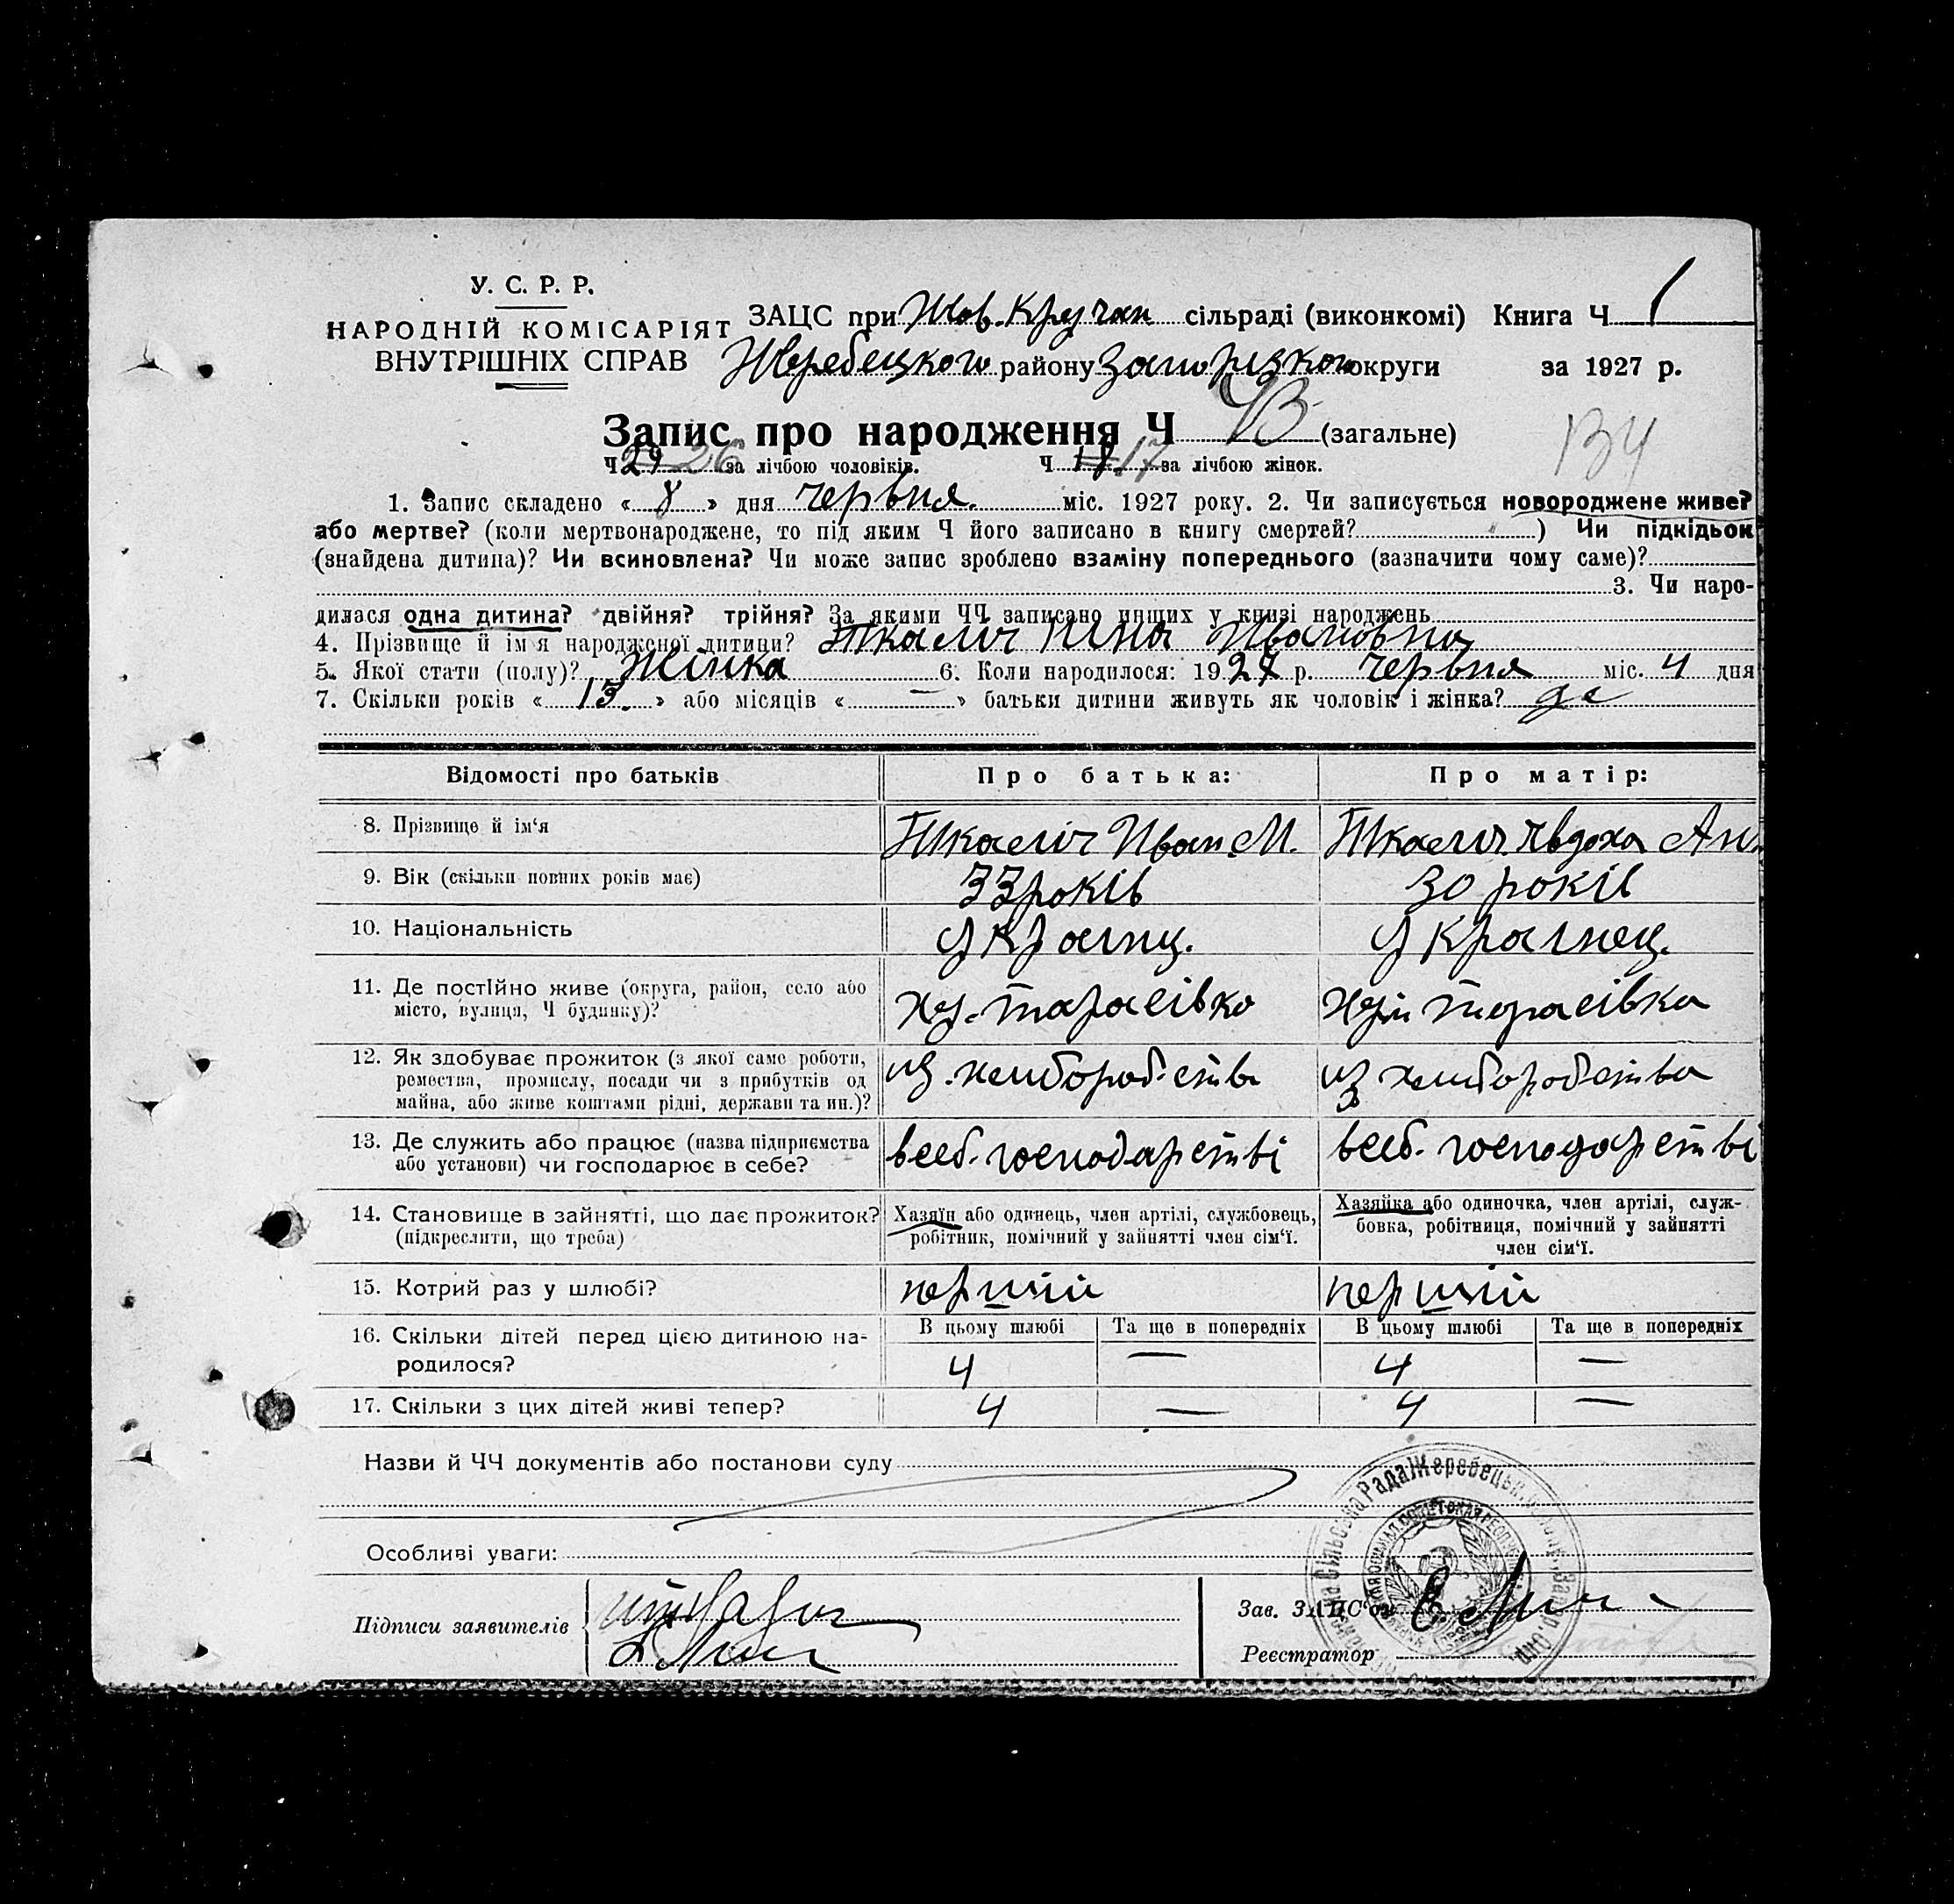 У. С. Р. Р.
НАРОДНІЙ КОМІСАРІЯТ
ВНУТРІШНІХ СПРАВ
ЗАЦС при Жов. Кручан сільраді (виконкомі) Книга Ч 1
Жеребецкого району Запорізкого округи за 1927 р.
Запис про народження Ч 43 (загальне)
134
Ч 29 26 за лічбою чоловіків. Ч 18 17 за лічбою жінок.
1. Запис складено « 8 » дня червня. міс. 1927 року. 2. Чи записується новороджене живе?
або мертве? (коли мертвонароджене, то під яким Ч його записано в книгу смертей? ) Чи підкідьок
(знайдена дитина)? Чи всиновлена? Чи може запис зроблено взаміну попереднього (зазначити чому саме)?
3. Чи наро-
дилася одна дитина? двійня? трійня? За якими ЧЧ записано инщих у книзі народжень
4. Прізвище й ім'я народженої дитини? Ткаліч Ніна Ивановна
5. Якої стати (полу)? Жінка 6. Коли народилося: 1927 р. червня міс. 4 дня
7. Скільки років « 13. » або місяців « — » батьки дитини живуть як чоловік і жінка?
Відомості про батьків Про батька: Про матір:
8. Прізвище й ім'я Ткаліч Иван М. Ткаліч Явдоха Ан.
9. Вік (скільки повних років має) 33 років 30 років
10. Національність Украінц. Украінец.
11. Де постійно живе (округа, район, село або
місто, вулиця, Ч будинку)? ху. Тарасівка Тарасівка
12. Як здобуває прожиток (з якої саме роботи,
ремества, промислу, посади чи з прибутків од
майна, або живе коштами рідні, держави та ин.)? из. хлиборобства из хлиборобства
13. Де служить або працює (назва підприємства
або установи) чи господарює в себе? всеб. господарстві всеб. господарстві
14. Становище в зайнятті, що дає прожиток?
(підкреслити, що треба)
Хазяїн або одинець, член артілі, службовець,
робітник, помічний у зайнятті член сім'ї.
Хазяйка або одиночка, член артілі, служ-
бовка, робітниця, помічний у зайнятті
член сім'ї.
15. Котрий раз у шлюбі? перший перший
16. Скільки дітей перед цією дитиною на-
родилося?
В цьому шлюбі Та ще в попередніх В цьому шлюбі Та ще в попередніх
4 — 4 —
17. Скільки з цих дітей живі тепер? 4 — 4 —
Назви й ЧЧ документів або постанови суду
Особливі уваги:
Підписи заявителів
Зав. ЗАЦС'ом
Реєстратор
Сільська Рада Жеребецьк.